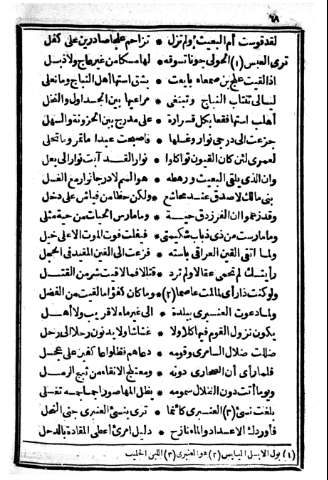 ٦٨
لقد قوست أم البعيث ولم تزل * تزاحم علجا صادرين على كفل
ترى العبس (١) الحولى جونا تسوقه * لها مسكا من غير عاج ولا ذبل
اذا لقيت علج بن صمعاء بايعت * بشق استها أهل النباج وما تغلى
ليالى تنتاب النباج وتبتغى * مراعيها بين الجداول والنخل
أهلب استها فقعا بكل قرارة * على مدرج بين الحزونة والسهل
جزعت الى درجى نوار وغسلها * فأصبحت عبدا ما تمر وما تحلى
لعمرى لئن كان القيون تواكلوا * نوار لقد آبت نوار الى بعل
وان الذى يلقى البعيث ورهطه * هو السم لا درجا نوار مع الغسل
بنى مالك لا صدق عند مجاشع * ولكن حظا من فياش على دخل
وقد زعموا أن الفرزدق حية * وما مارس الحيات من حية مثلى
وما مارست من ذى ذباب شكيمتى * فيفلت فوت الموت الا على خبل
ولما اتقى القين العراقى باسته * فرغت الى القين المقيد فى الحجل
رأيتك لم تحمى عقالا ولم ترد * قتالا فما لاقيت شر من القتل
ولو كنت ذا رأى لما لمت عاصما (٢) * وما كان كفؤا ما لقيت من الفضل
ولما دعوت العنبرى ببلدة * الى غير ماء لا قريب ولا أهل
يكون نزول القوم فيها كلا ولا * غشاشا ولا يدنون رحلا الى رحل
ضللت ضلال السامرى وقومه * دعاهم فظلوا عاكفين على عجل
فلما رأى أن الصحارى دونه * ومعتلج الانقاء من ثبج الرمل
ويوما أتت دون الظلال سمومه * يظل المها صورا جماجمه تغلى
بلغت نسىء (٣) العنبرى كأنما * ترى بنسىء العنبرى جنى النحل
فأوردك الاعداد والماء نازح * دليل امرئ أعطى المقادة بالدحل
(١) بول الابل اليابس (٢) هو العنبرى (٣) اللبن الحليب